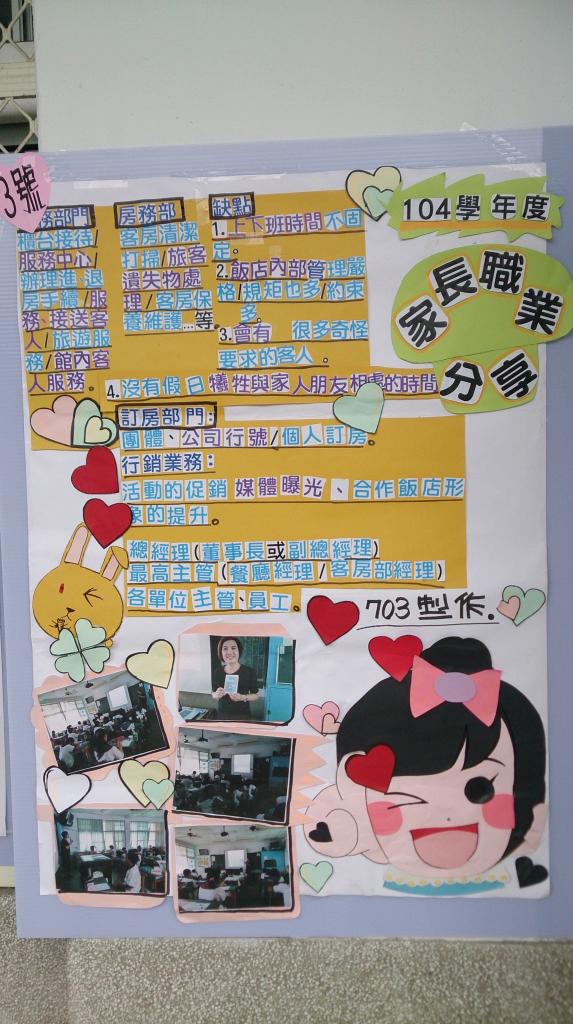 3號
104學年度
家長職業
分享
務部門
櫃台接待/
服務中心/
辦理進、退
房手續/服
務、接送客
人/旅遊服
務/館內客
人服務。
房務部
客房清潔
打掃/旅客
遺失物處
理/客房保
養維護...等。
缺點
1.上下班時間不固
定。
2.飯店內部管理嚴
格/規矩也多/約束
多。
3.會有 很多奇怪
要求的客人。
4.沒有假日犧牲與家人朋友相處的時間
訂房部門:
團體、公司行號/個人訂房。
行銷業務:
活動的促銷 媒體曝光、合作飯店形
象的提升。
總經理(董事長或副總經理)
最高主管(餐廳經理/客房部經理)
各單位主管、員工。
703製作.